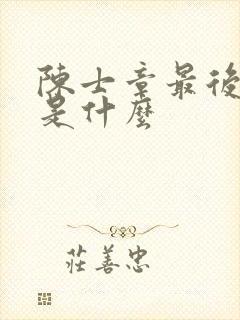 陳士章最後
是什麼
莊善忠